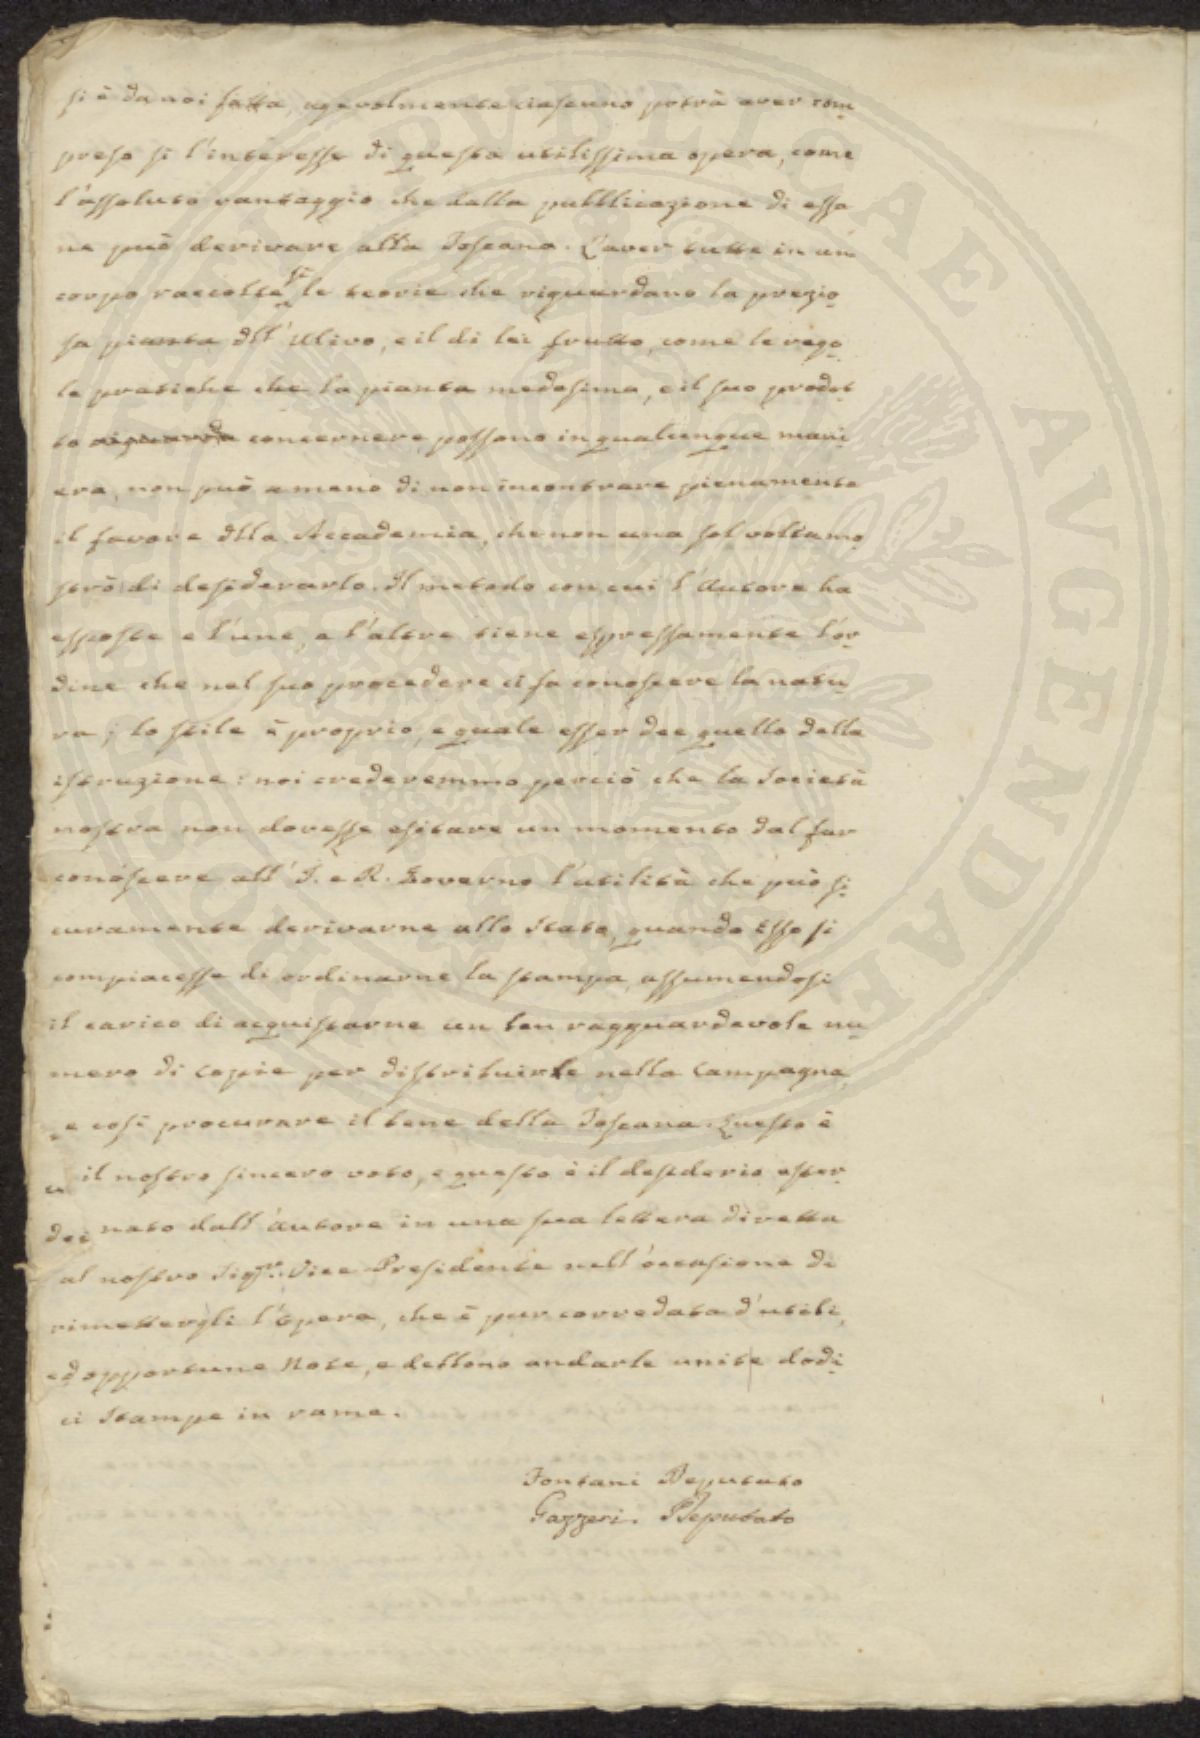 si è da noi fatta, agevolmente ciascuno potrà aver com
preso si l'interesse di questa utilissima opera, come
l'assoluto vantaggio che dalla pubblicazione di essa
ne può derivare alla Toscana. L'aver tutte in un
corpo raccolte sì le teorie che riguardano la prezio
sa pianta dll'Ulivo, e il di lei frutto, come le rego
le pratiche che la pianta medesima, e il suo prodot
to riguarda concernere possono in qualunque mani
era, non può a meno di non incontrare pienamente
il favore dlla Accademia, che non una sol volta mo
strò di desiderarlo. Il metodo con cui l'Autore ha
esposte e l'une, e l'altre tiene espressamente l'or
dine che nel suo procedere ci fa conoscere la natu
ra; lo stile è proprio, e quale esser dee quello della
istruzione: noi crederemmo perciò che la Società
nostra non dovesse esitare un momento dal far
conoscere all'I. e R. Governo l'utilità che può si
curamente derivarne allo Stato, quando Esso si
compiacesse di ordinarne la stampa, assumendosi
il carico di acquistarne un ben ragguardevole nu
mero di copie per distribuirle nella Campagna,
e così procurare il bene della Toscana. Questo è
il nostro sincero voto, e questo è il desiderio ester
nato dall'Autore in una sua lettera diretta
al nostro Sigre. Vice Presidente nell'occasione di
rimettergli l'Opera, che è pur corredata d'utili,
ed opportune Note, e debbono andarle unite dodi
ci Stampe in rame.
Fontani Deputato
Gazzeri. Deputato
PROSPERITATI PVBLICAE AVGENDAE